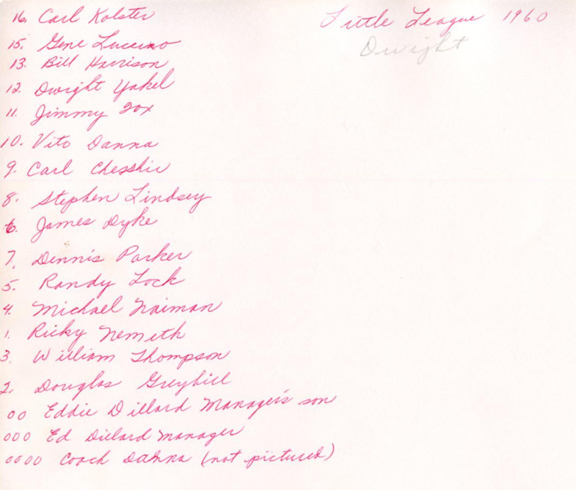 Little League 1960
Dwight
16. Carl Kolster
15. Gene Lucerno
13. Bill Harrison
12. Dwight Yakel
11. Jimmy
10. Vito Danna
9. Carl Chesshir
8. Stephen Lindsey
6. James Dyke
7. Dennis Parker
5. Randy Lock
4. Michael Naiman
1. Ricky Nemeth
3. William Thompson
2. Douglas Greybill
00 Eddie Dillard Manager's son
000 Ed Dillard manager
0000 Coach Danna (not pictured)